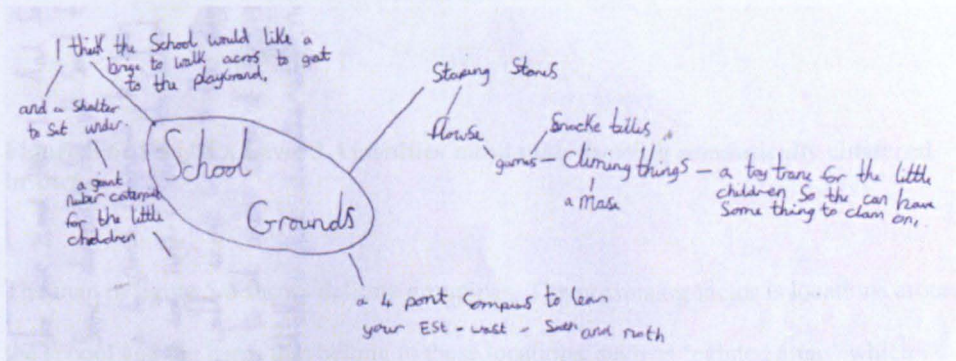 I think the School would like a
brige to walk acros to get
to the playground.
and a Shelter
to Sit under
a gaint
ruber caterpiler
for the little
children
School
Grounds
Steping Stones
flowse
Snacke tables
games - climing things - a toy trane for the little
children So the can have
Some thing to clam on.
a Mase
a 4 pont compus to lern
your Est - west - South and north